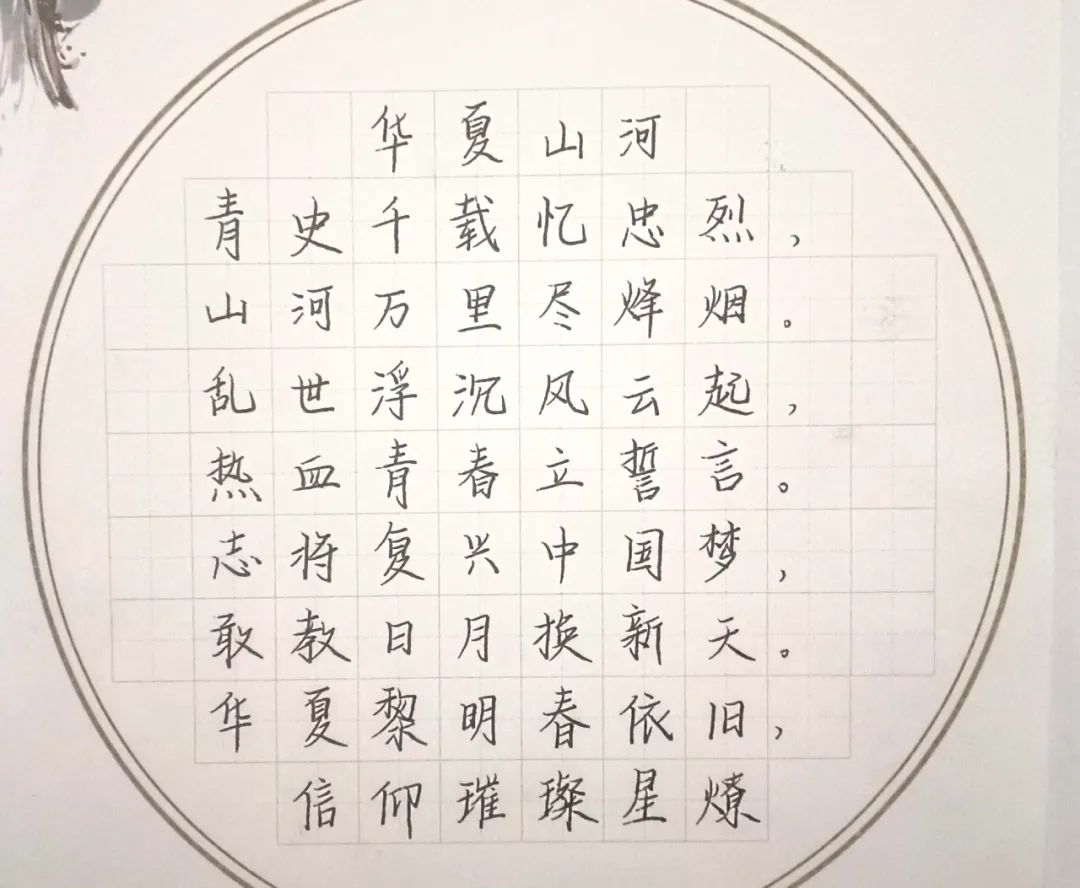 华夏山河
青史千载忆忠烈，
山河万里尽烽烟。
乱世浮沉风云起，
热血青春立誓言。
志将复兴中国梦，
敢教日月换新天。
华夏黎明春依旧，
信仰璀璨星燎